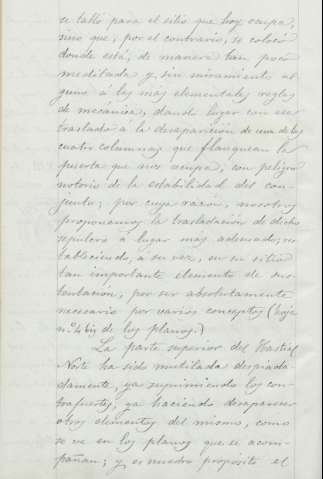 se talló para el sitio que hoy ocupa,
sino que, por el contrario, se colocó
donde está, de manera tan poco
meditada y sin miramiento al
guno á las más elementales reglas
de mecánica, dando lugar con ese
traslado á la desaparición de una de las
cuatro columnas que flanquean la
puerta que nos ocupa, con peligro
notorio de la estabilidad del con
junto; por cuya razón, nosotros
proponemos la trasladación de dicho
sepulcro á lugar más adecuado, res
tableciendo, á su vez, en su sitio
tan importante elemento de sus
tentación, por ser absolutamente
necesario por varios conceptos (hoja
nº 4 bis de los planos.)
La parte superior del Hastial
Norte ha sido mutilada despiada
damente, ya suprimiendo los con
trafuertes, ya haciendo desaparecer
otros elementos del mismo, como
se ve en los planos que se acom
pañan; y es nuestro propósito el